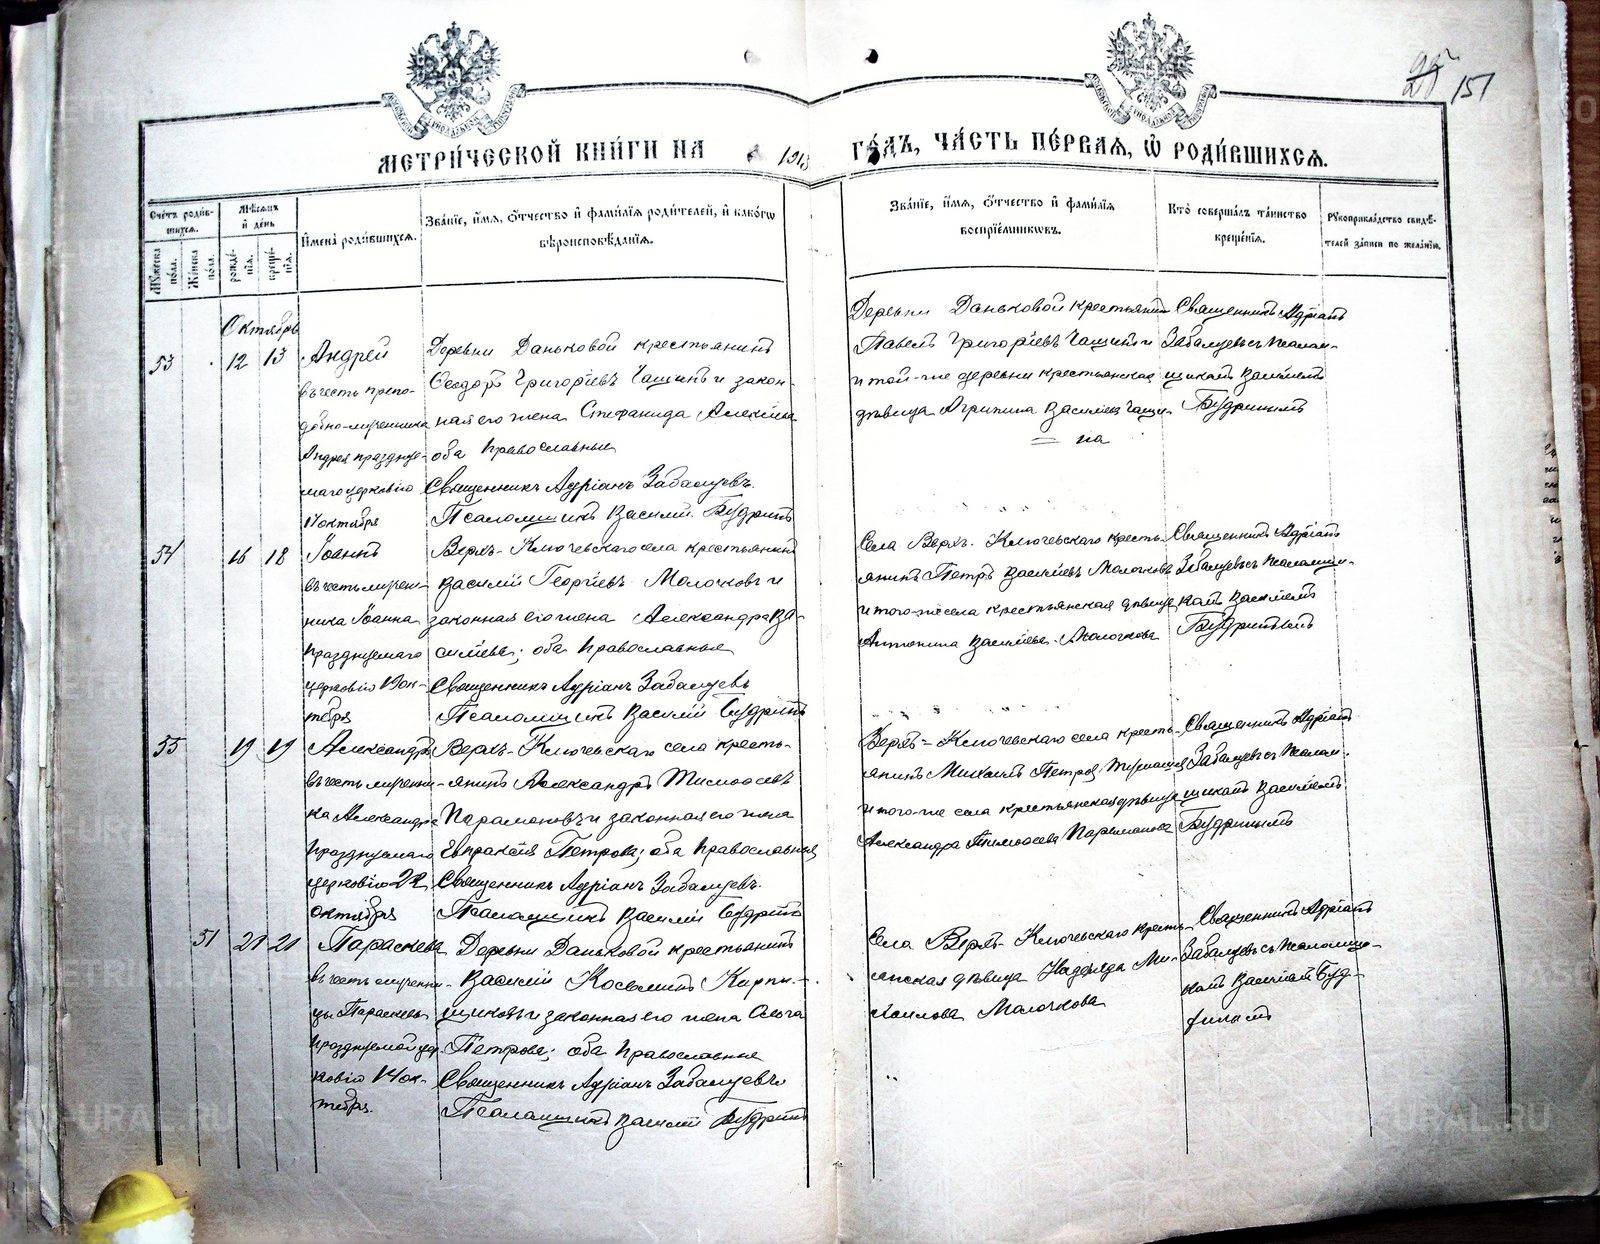 151
МЕТРИ́ЧЕСКОЙ КНИ́ГИ НА 1913 ГО́ДЪ, ЧА́СТЬ ПЕ́РВАЯ, Ѡ РОДИ́ВШИХСЯ.
Сче́тъ роди́вшихся.
Му́жеска по́ла.
Же́нска по́ла.
Мѣ́сяцъ и де́нь
рожде́нїя.
креще́нїя.
И҆мена̀ роди́вшихся.
Зва́нїе, и҆́мя, ѻ҆́тчество и҆ фами́лїя роди́телей, и҆ како́гѡ
вѣроисповѣ́данїя.
Зва́нїе, и҆́мя, ѻ҆́тчество и҆ фами́лїя
воспрїе́мникѡвъ.
Кто̀ соверша́лъ та́инство
креще́нїя.
Рꙋкоприкла́дство свидѣ́-
телей за́писи по жела́нїю.
Октябрь
53 12 13 Андрей
въ честь препо-
добно-мученика
Андрея празднуе-
маго церковію
17 октября
Деревни Даньковой крестьянинъ
Ѳеодоръ Григоріевъ Чащинъ и закон-
ная его жена Стефанида Алексіева
оба православные
Священникъ Адріанъ Забалуевъ.
Псаломщикъ Василій Будринъ
Деревни Даньковой крестьянинъ
Павелъ Григоріевъ Чащинъ и
и той-же деревни крестьянская
дѣвица Агрипина Василіева Чащи-
на
Священникъ Адріанъ
Забалуевъ съ псалом-
щикомъ Василіемъ
Будринымъ
54 16 18 Іоаннъ
въ честь мучени-
ника Іоанна
празднуемаго
церковію 19 ок-
тября
Верхъ-Ключевскаго села крестьянинъ
Василій Георгіевъ Молочковъ и
законная его жена Александра Ва-
силіева; оба православные
Священникъ Адріанъ Забалуевъ
Псаломщикъ Василій Будринъ
Села Верхъ-Ключевскаго кресть-
янинъ Петръ Василіевъ Молочковъ
и того-же села крестьянская дѣвица
Антонина Василіева Молочкова
Священникъ Адріанъ
Забалуевъ съ псаломщи-
комъ Василіемъ
Будринымъ
55 19 19 Александръ
въ честь мучени-
ка Александра
празднуемаго
церковію 22
октября
Верхъ-Ключевскаго села кресть-
янинъ Александръ Тимоѳеевъ
Парамоновъ и законная его жена
Евпраксія Петрова; оба православные
Священникъ Адріанъ Забалуевъ.
Псаломщикъ Василій Будринъ
Верхъ-Ключевскаго села кресть-
янинъ Михаилъ Петровъ
и того-же села крестьянская дѣвица
Александра Тимоѳеева Парамонова
Священникъ Адріанъ
Забалуевъ съ псалом-
щикомъ Василіемъ
Будринымъ
51 21 21 Параскева
въ честь мучени-
цы Параскевы
празднуемой цер-
ковію 14 ок-
тября.
Деревни Даньковой крестьянинъ
Василій Косьминъ Кирпи-
щиковъ и законная его жена Ольга
Петрова; оба православные
Священникъ Адріанъ Забалуевъ
Псаломщикъ Василій Будринъ
Села Верхъ-Ключевскаго кресть-
янская дѣвица Надежда Ми-
хаилова Молочкова
Священникъ Адріанъ
Забалуевъ съ псаломщи-
комъ Василіемъ Буд-